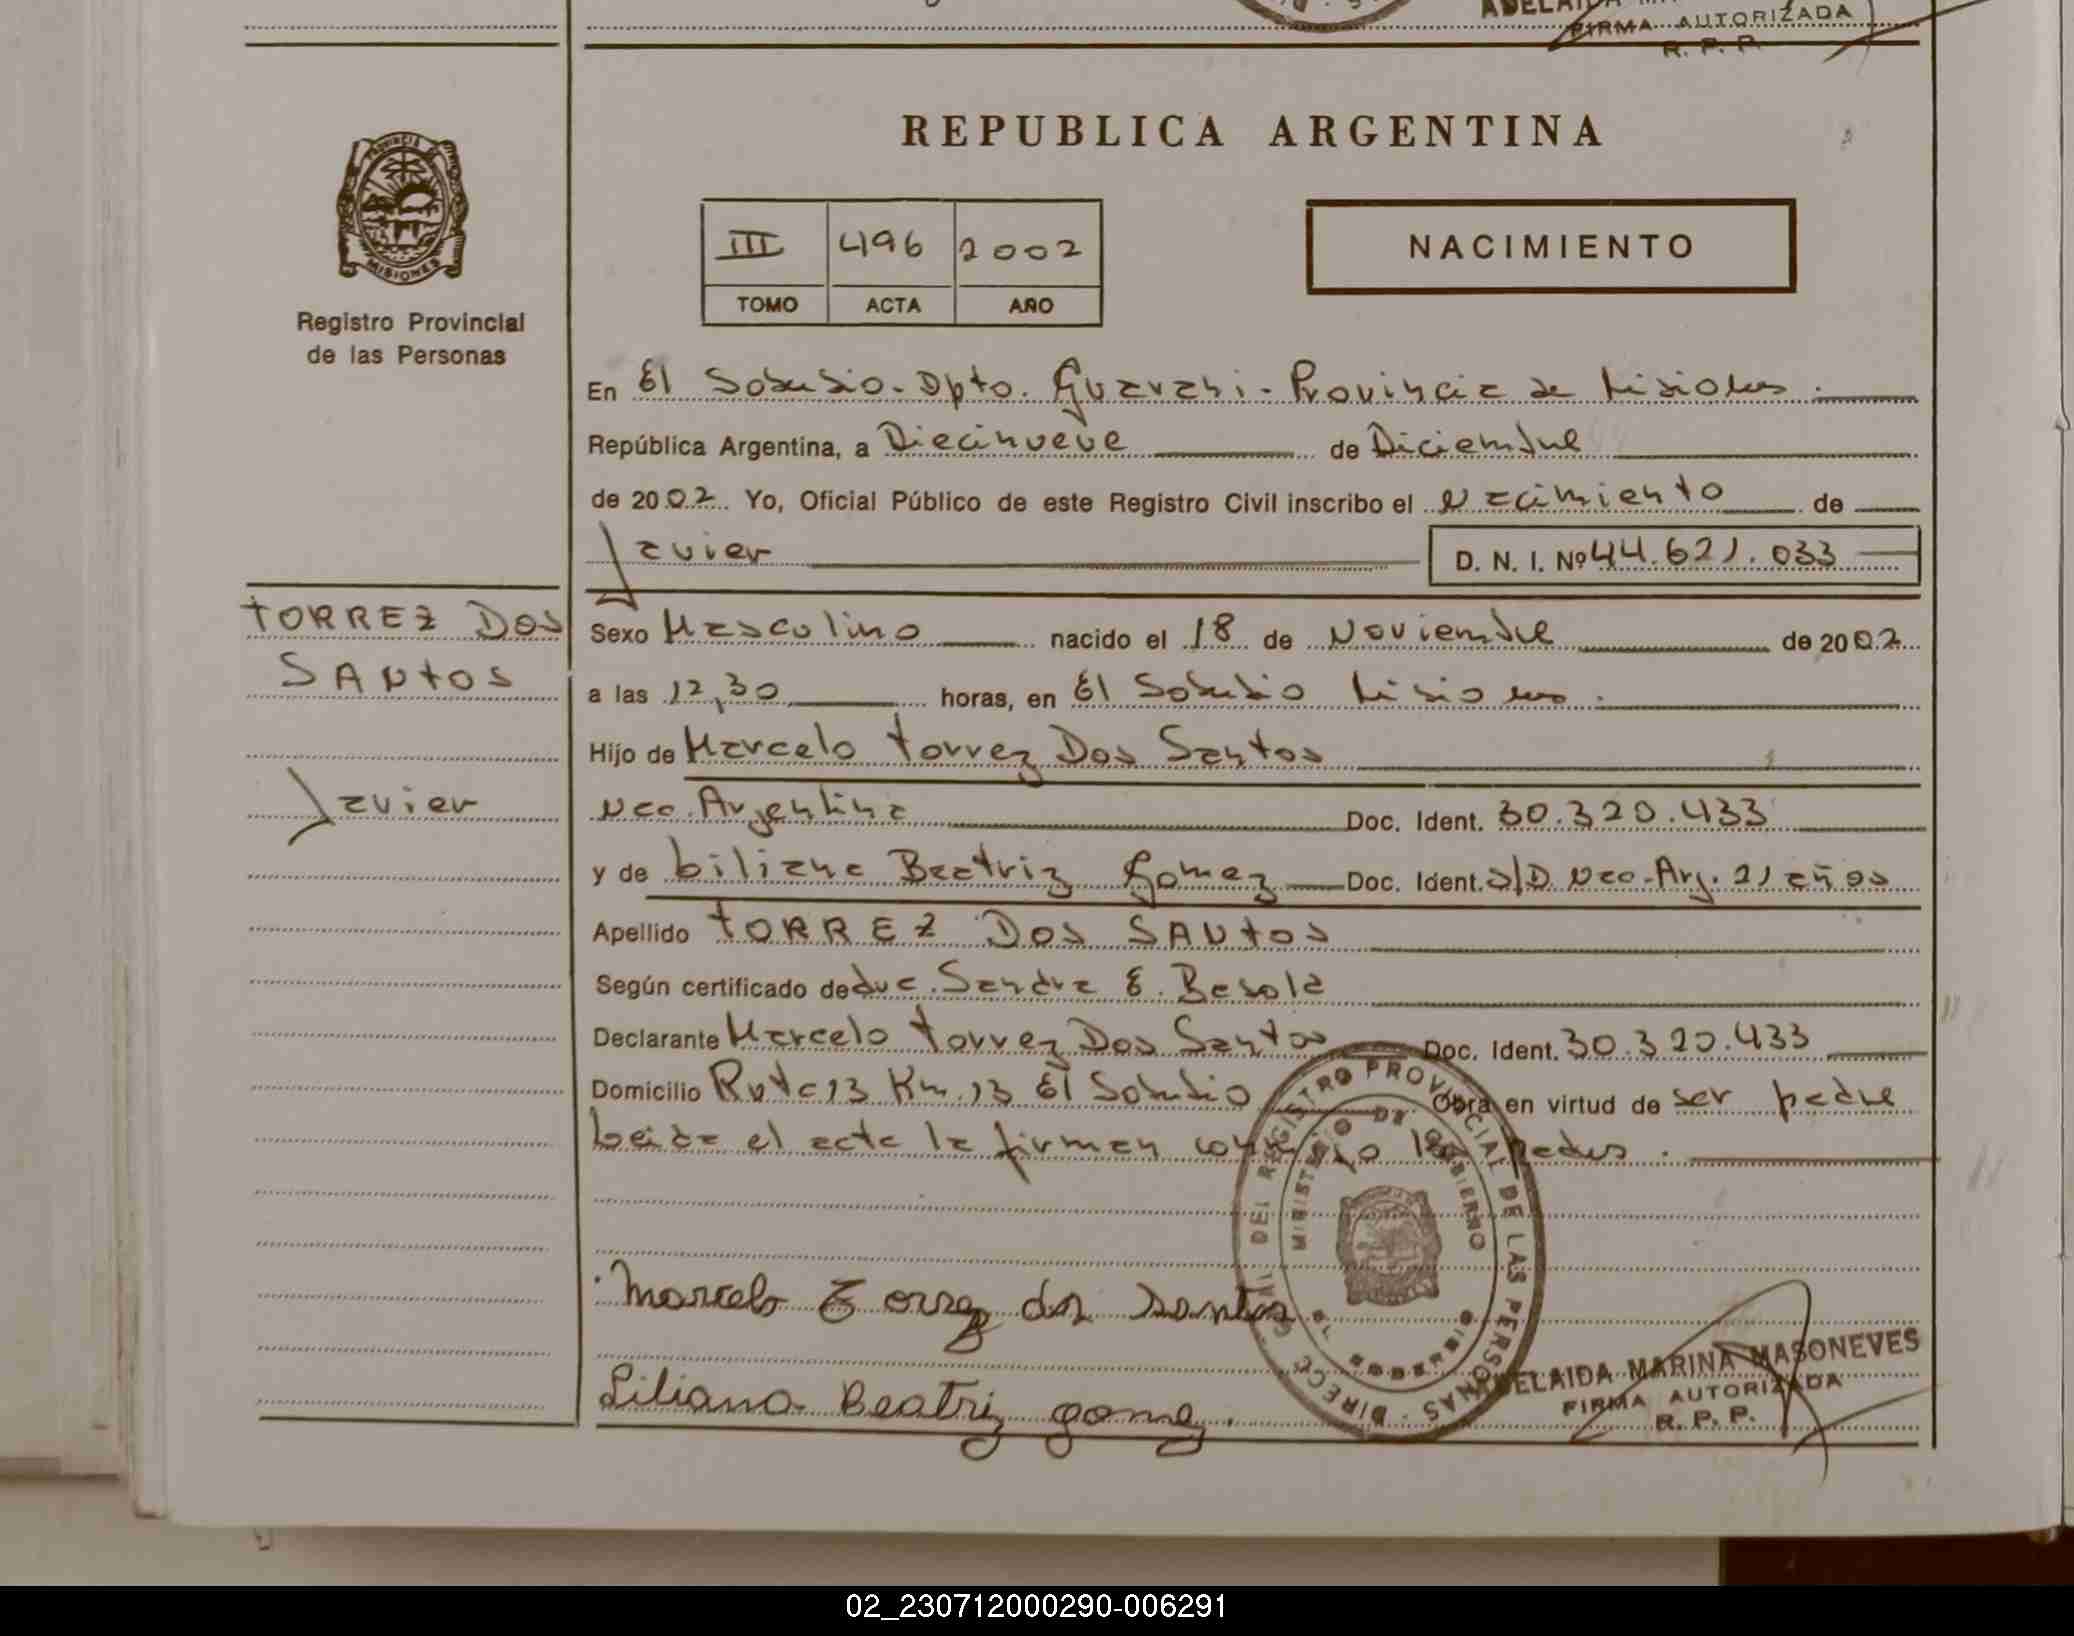 FIRMA AUTORIZADA
R. P. P.
PROVINCIA DE
MISIONES
Registro Provincial
de las Personas
REPUBLICA ARGENTINA
III 496 2002
TOMO ACTA AÑO
NACIMIENTO
En El Soberbio - Dpto. Guarani - Provincia de Misiones.
República Argentina, a Diecinueve de Diciembre
de 2002 Yo, Oficial Público de este Registro Civil inscribo el Nacimiento de
Javier D. N. I. Nº 44.621.033
TORREZ DOS
SANTOS
Javier
Sexo Masculino nacido el 18 de Noviembre de 2002
a las 12,30 horas, en El Soberbio Misiones.
Hijo de Marcelo Torrez Dos Santos
Nac. Argentina Doc. Ident. 30.320.433
y de Liliana Beatriz Gomez Doc. Ident. S/D Nac. Arg. 21 años
Apellido TORREZ DOS SANTOS
Según certificado de Sandra E.
Declarante Marcelo Torrez Dos Santos Doc. Ident. 30.320.433
Domicilio Ruta 13 Km. 13 El Soberbio Obra en virtud de ser padre
Leida el acta la firman conmigo los padres.
Marcelo Torrez dos Santos
Liliana Beatriz gomez.
DIRECC. GRAL. DEL REGISTRO PROVINCIAL DE LAS PERSONAS
MINISTERIO DE GOBIERNO
EL SOBERBIO
ADELAIDA MARINA MASONEVES
FIRMA AUTORIZADA
R. P. P.
02_230712000290-006291